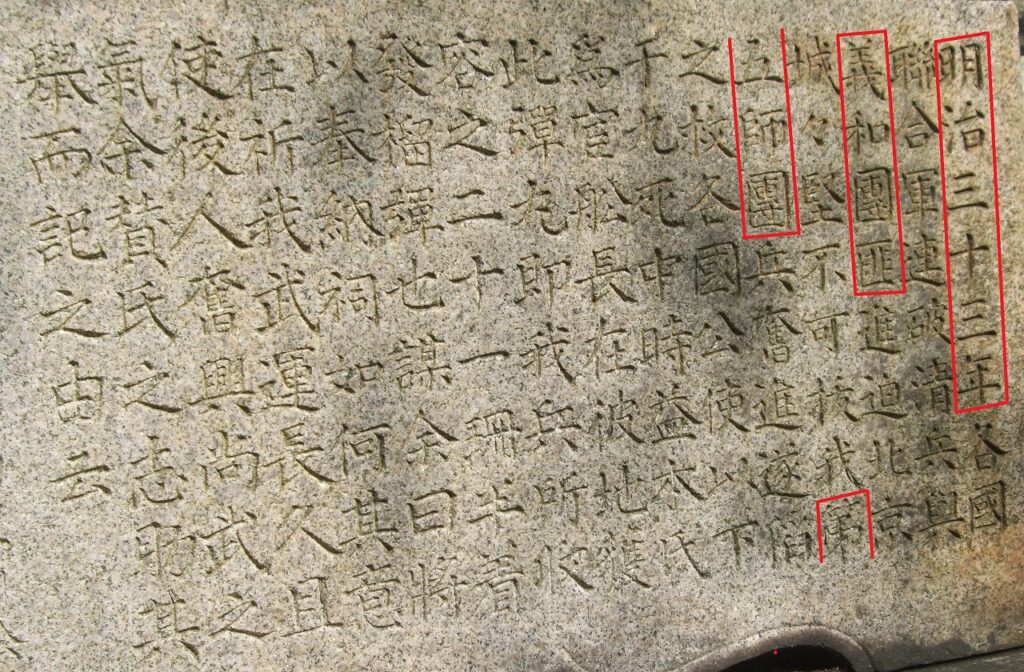 明治三十三年各國
聯合軍連破清兵與
義和團匪進迫北京
城々堅不可拔我第
五師團兵奮進遂陷
之救各國公使以下
于九死中時益太氏
爲官船長在彼地獲
此彈丸即我兵所收
容之二十一珊半着
發榴彈也謀余曰將
以奉納祠如何其意
在祈我武運長久且
使後人奮興尚武之
氣余賛氏之志助其
舉而記之由云